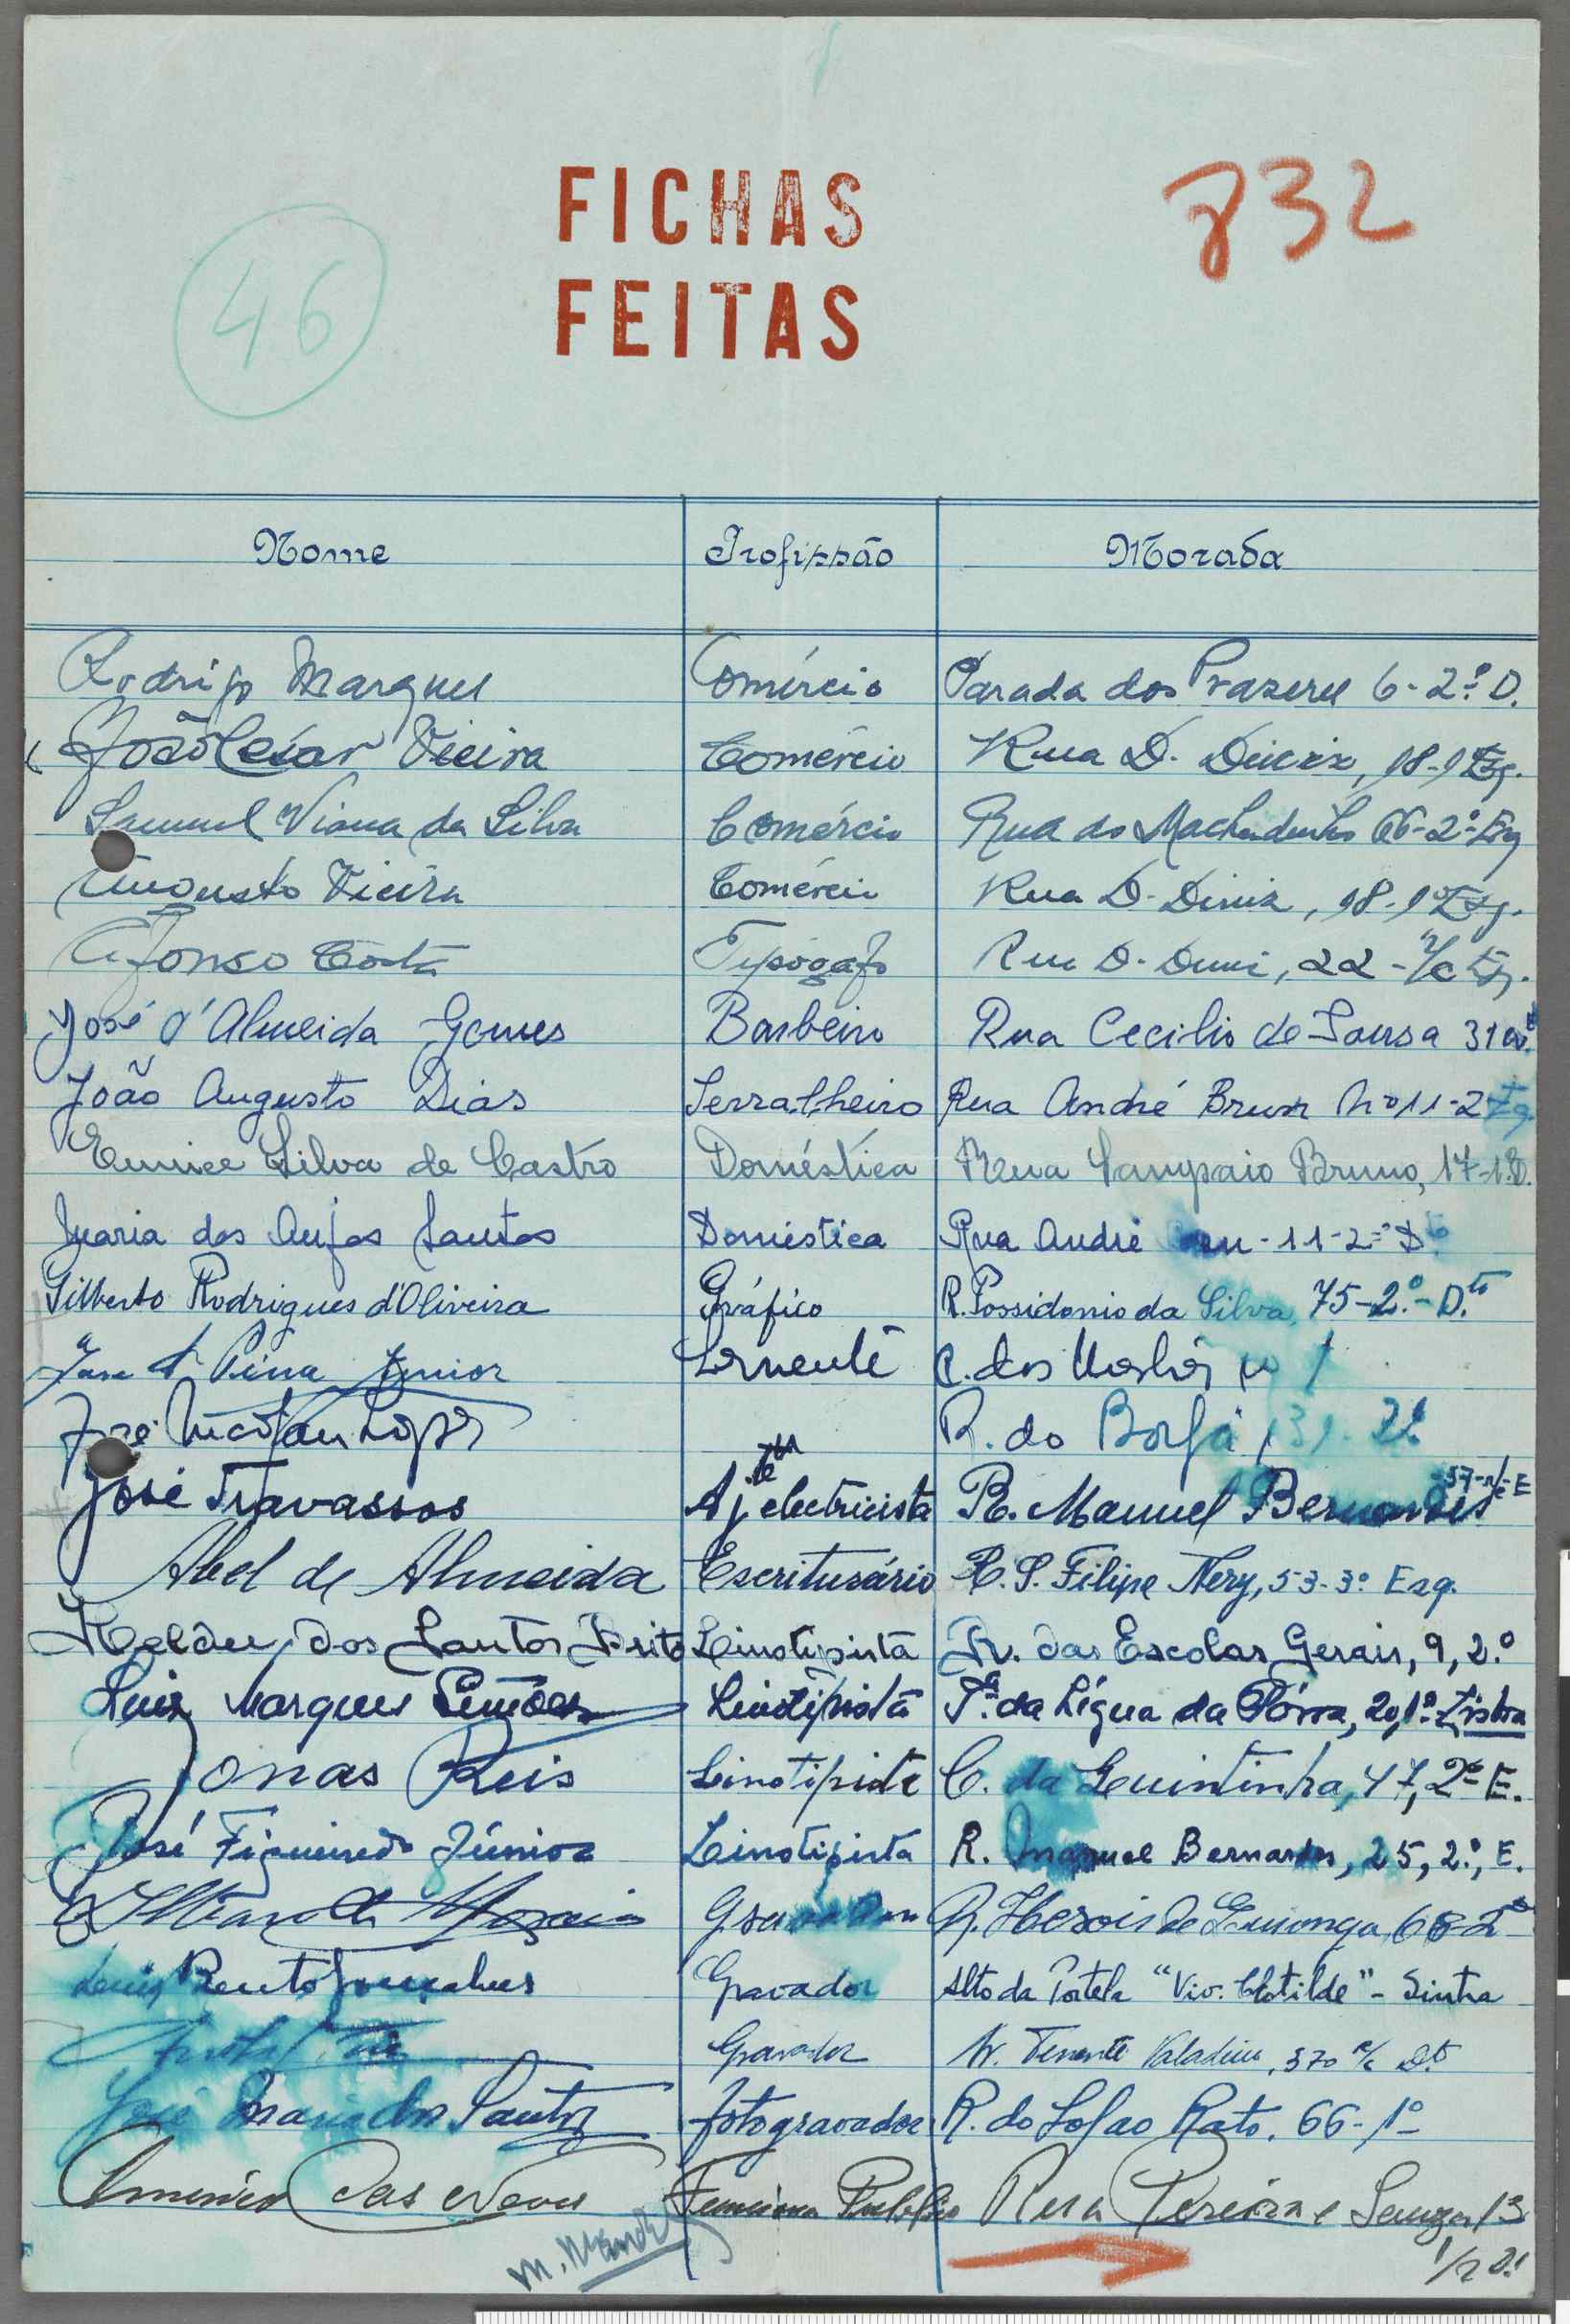 46
FICHAS
FEITAS
832
Nome Profissão Morada
Rodrigo Marques Comércio Parada dos Prazeres 6-2º D.
João Cesar Vieira Comércio Rua D. Diniz, 98-1 Esq.
Samuel Viana da Silva Comércio Rua do Machadinho 66-2º Esq
Augusto Vieira Comércio Rua D. Diniz, 98-1º Esq.
Afonso Costa Tipógafo Rua D. Dinis, 22-r/c Esq.
José d'Almeida Gomes Barbeiro Rua Cecilio de Sousa 31
João Augusto Dias Serralheiro Rua André Brun nº 11-2 Eq.
Eunice Silva de Castro Doméstica Rua Sampaio Bruno, 17-1º D.
Maria dos Anjos Santos Doméstica Rua André 11-2º Dto
Gilberto Rodrigues d'Oliveira Gráfico R. Possidonio da Silva, 75-2º-D.to
José Pina Junior Servente C. dos
José Nicolau Lopes R. do Borja, 31-2º
José Travassos Ajte electricista R. Manuel Bernardes -37-r/c-E
Abel de Almeida Escriturário R. S. Filipe Nery, 53-3º Esq.
Helder dos Santos Brito Linotipista Av. das Escolas Gerais, 9, 2.º
Luiz Marques Simões Linotipista Tª. da Légua da Póvoa, 20, 1º Lisboa
Jonas Reis Linotipista C. da Quintinha, 47, 2º E.
José Figueiredo Júnior Linotipista R. Manuel Bernardes, 25, 2.º, E.
Gravador R. Herois de Quionga, 68-2º
Luis Bento Gonçalves Gravador Alto da Portela "Viv. Clotilde" - Sintra
Gravador Av. Tenente Valadim, 370 r/c Dto
José Maria dos Santos fotogravador R. do Sol ao Rato, 66-1º
Americo das Neves Publico Rua Pereira e Souza 13
M.